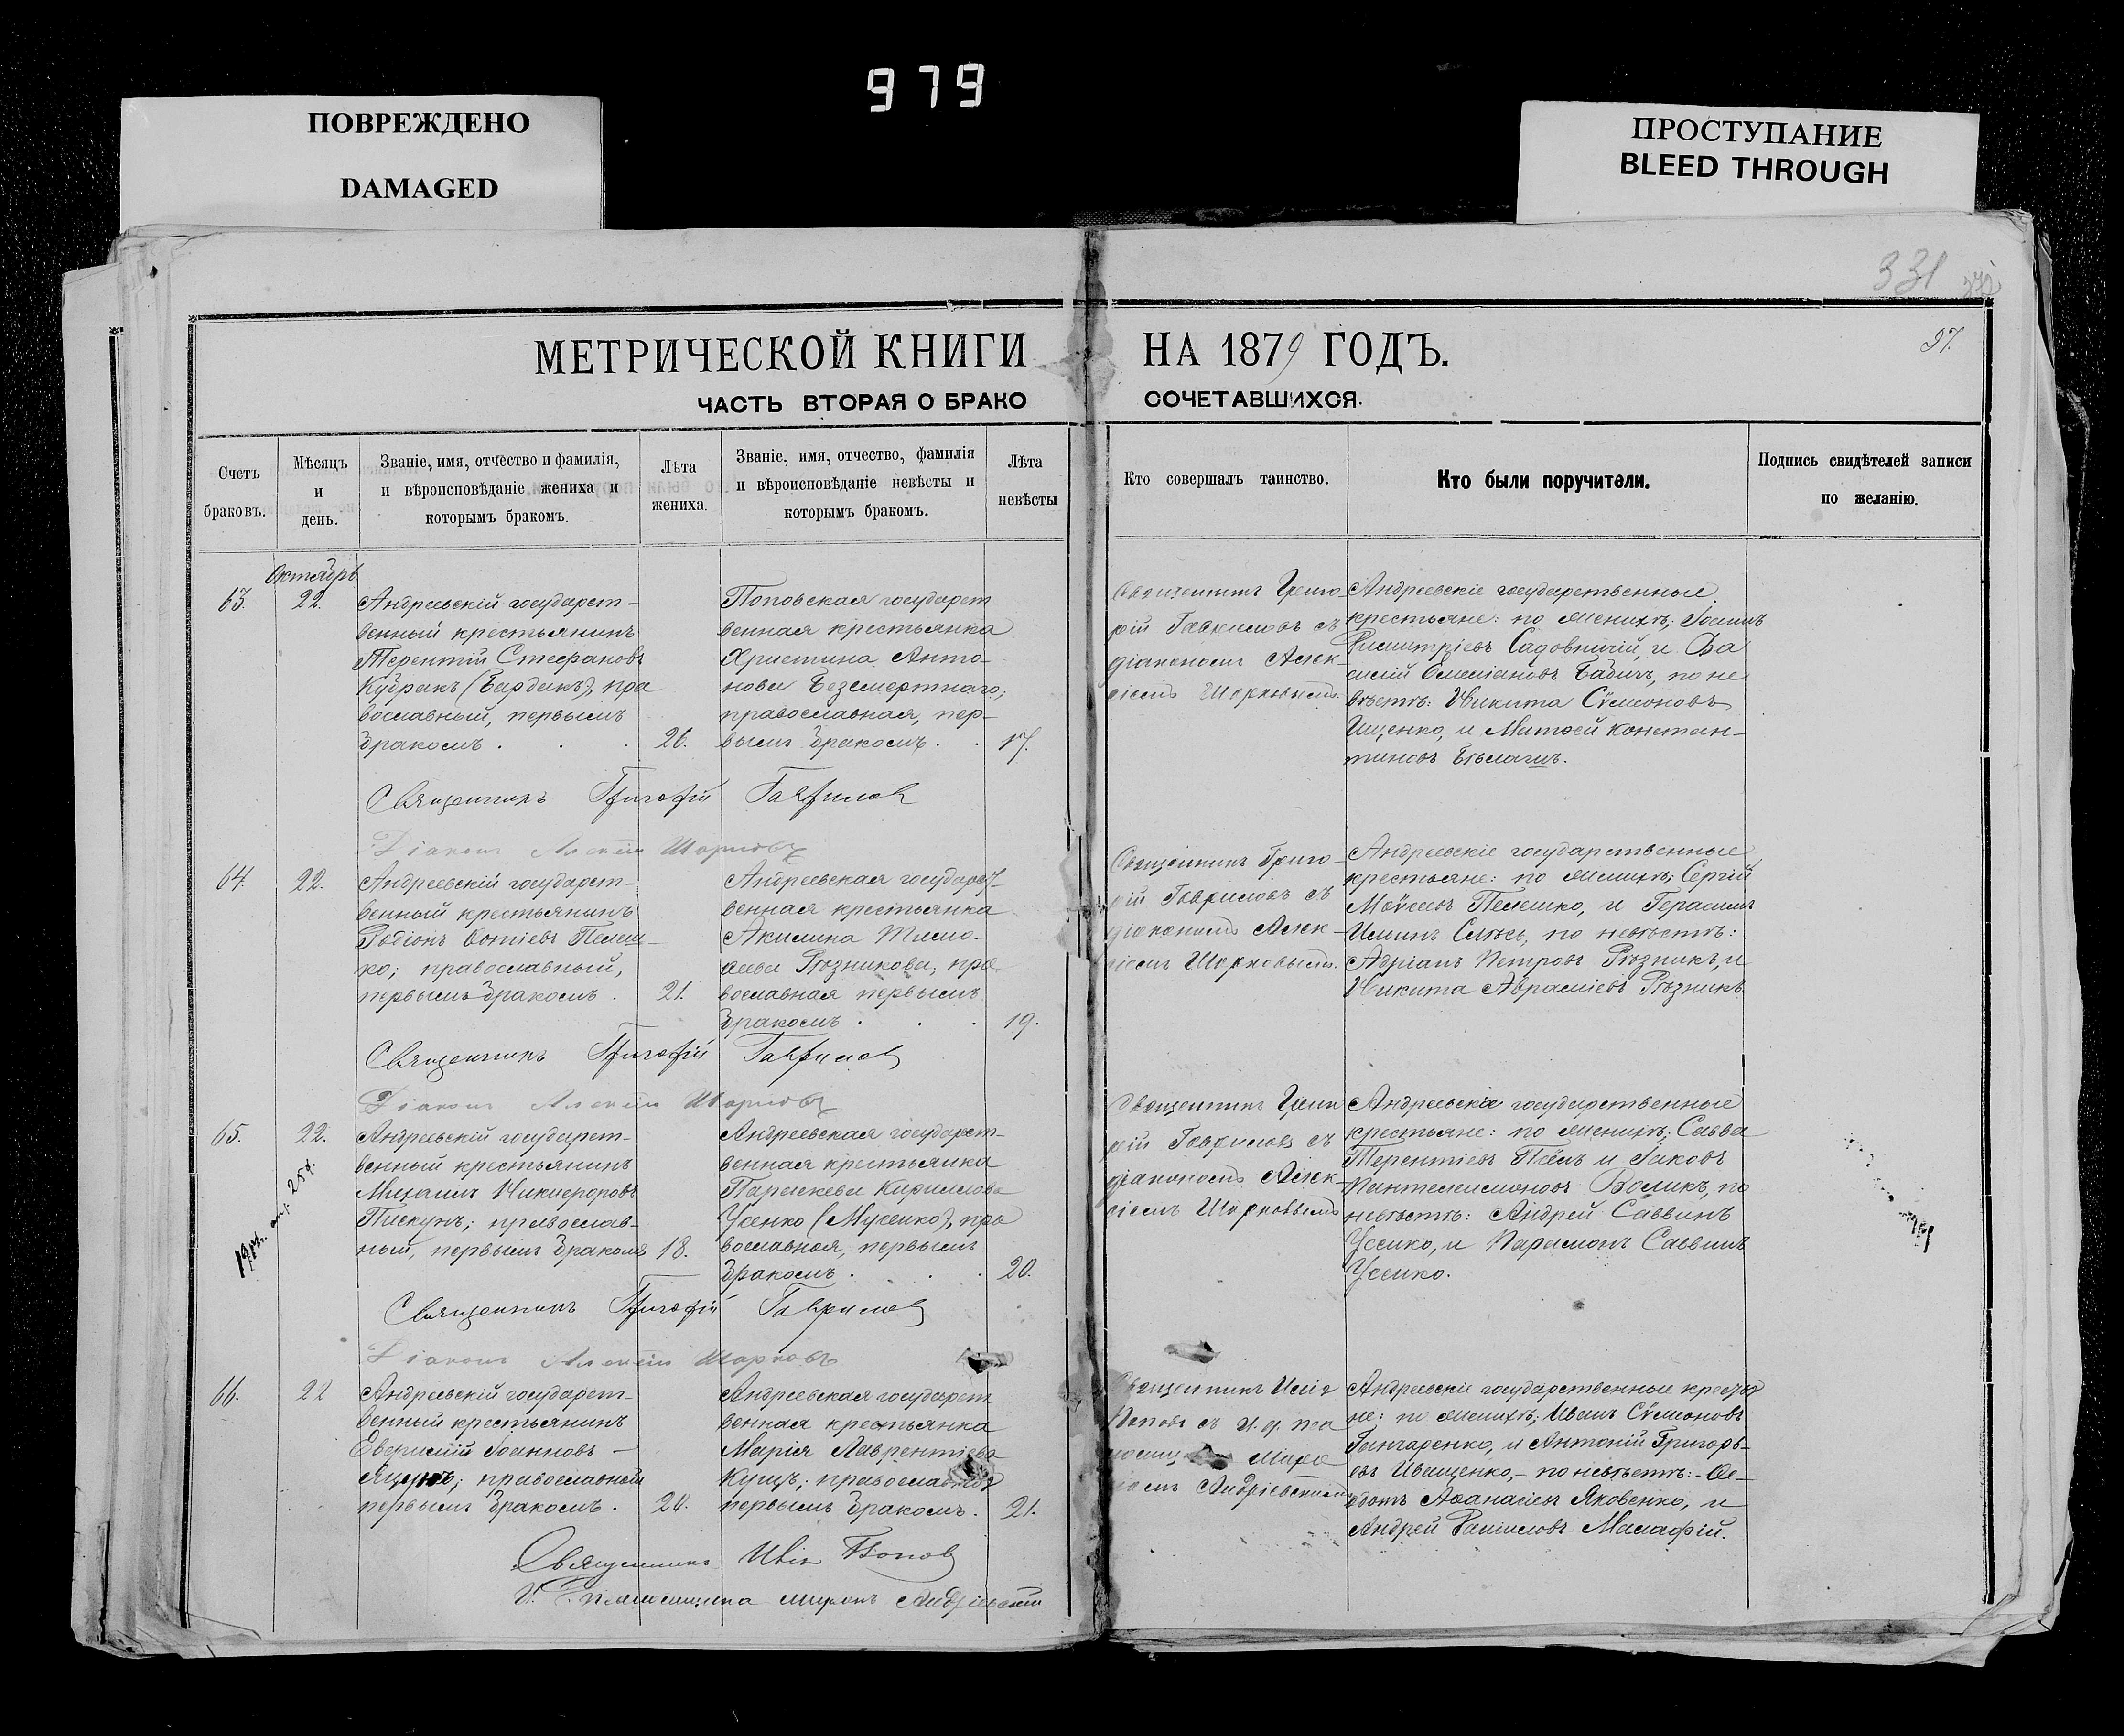 979
ПОВРЕЖДЕНО
DAMAGED
ПРОСТУПАНИЕ
BLEED THROUGH
331
97.
МЕТРИЧЕСКОЙ КНИГИ НА 1879 ГОДЪ.
ЧАСТЬ ВТОРАЯ О БРАКОСОЧЕТАВШИХСЯ.
Счетъ
браковъ.
Мѣсяцъ
и
день.
Званіе, имя, отчество и фамилія,
и вѣроисповѣданіе жениха и
которымъ бракомъ.
Лѣта
жениха.
Званіе, имя, отчество, фамилія
и вѣроисповѣданіе невѣсты и
которымъ бракомъ.
Лѣта
невѣсты
Кто совершалъ таинство.
Кто были поручители.
Подпись свидѣтелей записи
по желанію.
Октябрь
63.
22.
Андреевскій государст-
венный крестьянинъ
Терентій Стефановъ
Кубракъ (Бардакъ), пра
вославный, первымъ
бракомъ.
26.
Поповская государст
венная крестьянка
Христина Анто-
нова Безсмертнаго,
православная, пер-
вымъ бракомъ.
17.
Священникъ Григо-
рій Гавриловъ съ
діакономъ Алек-
сіемъ Шарковымъ.
Андреевскіе государственные
крестьяне: по женихѣ; Іоаннъ
Димитріевъ Садовничій, и Ва
силій Емеліановъ Бабичъ, по не
вѣстѣ: Никита Сѵмеоновъ
Ищенко, и Матвей Констан-
тиновъ
Священникъ Григорій Гаврилов
Діаконъ Алексій Шарковъ
64.
22.
Андреевскій государст-
венный крестьянинъ
Родіонъ Фотіевъ Пелеш-
ко; православный,
первымъ бракомъ.
21.
Андреевская государст-
венная крестьянка
Акилина Тимо-
феева Рѣзникова, пра
вославная первымъ
бракомъ.
19.
Священникъ Григо-
рій Гавриловъ съ
діакономъ Алек-
сіемъ Шарковымъ.
Андреевскіе государственные
крестьяне: по женихѣ; Сергій
Моѵсеевъ Пелешко, и Герасимъ
Ильинъ по невѣстѣ:
Адріанъ Петровъ Рѣзникъ, и
Никита Авраміевъ Рѣзникъ.
Священникъ Григорій Гаврилов
Діаконъ Алексій Шарковъ
65.
22.
Андреевскій государст-
венный крестьянинъ
Михаилъ Никифоровъ
Пискунъ; православ-
ный, первымъ бракомъ
18.
Андреевская государст-
венная крестьянка
Параскева Кириллова
Усенко (Мусенко), пра
вославная, первымъ
бракомъ.
20.
Священникъ Григо
рій Гавриловъ съ
діакономъ Алек-
сіемъ Шарковымъ
Андреевскіе государственные
крестьяне: по женихѣ; Савва
Терентіевъ и Іаковъ
Пантелеимоновъ Воликъ, по
невѣстѣ: Андрей Саввинъ
Усенко, и Парамонъ Саввинъ
Усенко.
Священникъ Григорій Гаврилов
Діаконъ Алексій Шарковъ
66.
22
Андреевскій государст-
венный крестьянинъ
Евфимій Іоанновъ
православный
первымъ бракомъ.
20.
Андреевская государст
венная крестьянка
Марія Лаврентіева
Куцъ; православная
первымъ бракомъ.
21.
Священникъ
Поповъ съ И. д. пса
ломщ
Андріевскимъ
Андреевскіе государственные крестья
не: по женихѣ; Иванъ Сѵмеоновъ
Ганчаренко, и Антоній Григорь-
евъ Иващенко,- по невѣстѣ:- Ѳе-
одотъ Аѳанасіевъ Яковенко, и
Андрей Даниловъ Малафій.
Священникъ Попов
И. д. псаломщика Андріевскій